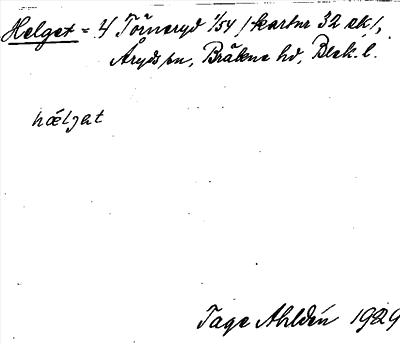 Helgat = 4 Törneryd 1/54 /kartnr 32 ek/,
Åryds sn, Bräkne hd, Blek. l.
hælgat
Tage Ahldén 1929